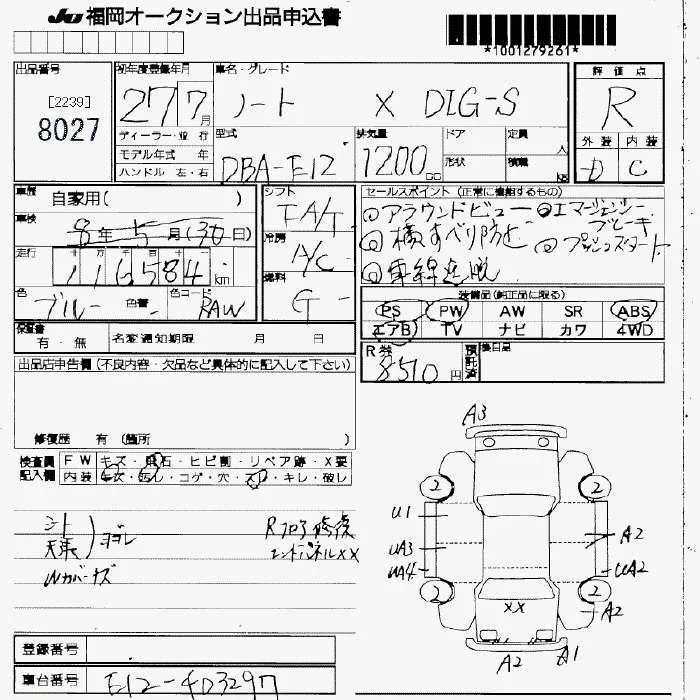 JU 福岡オークション出品申込書
*1001279261*
出品番号
[2239]
8027
初年度登録年月
27 7月
ディーラー・並 行
モデル年式 年
ハンドル 左・右
車名・グレード
ノート X DIG-S
型式
DBA-E12
排気量
1200 cc
ドア
形状
定員 人
積載 kg
評価点
R
外装 内装
D C
車歴
自家用( )
車検
8年5月(30日)
走行
116584 km
色
ブルー 色替
色コード
RAW
シフト
FA/T
冷房
A/C
燃料
G
セールスポイント (正常に機能するもの)
◎アラウンドビュー ◎エマージェンシーブレーキ
◎横すべり防止 ◎プッシュスタート
◎車線逸脱
装備品(純正品に限る)
PS PW AW SR ABS
エアB TV ナビ カワ 4WD
保証書
有・無
名変通知期限 月 日
R券
8510円
預託済
後日品
出品店申告欄(不良内容・欠品など具体的に記入して下さい)
修復歴 有 (箇所 )
検査員記入欄
FW キズ・飛石・ヒビ割・リペア跡・X要
内装 キズ・汚し・コゲ・穴・スレ・キレ・破レ
シート
天張
ヨゴレ
Wカバーキズ
Rフロア修復
エンドパネルXX
A3
2 2
U1
UA3
UA4
A2
UA2
2 2
A2
XX
A2
A1
登録番号
車台番号
E12-403297